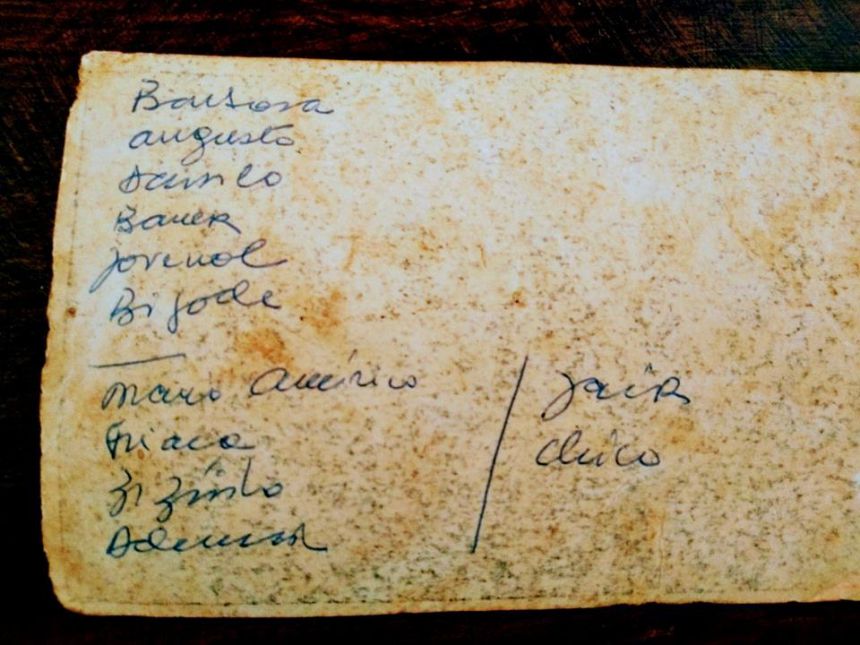 Barbosa
augusto
Danilo
Bauer
Jovenal
Bigode
Mario Américo
Friaca
Zizinho
Ademir
Jair
Chico